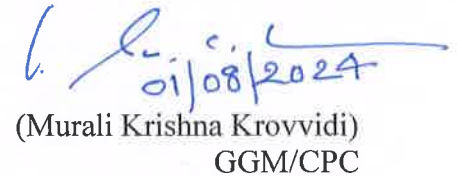 01/08/2024
(Murali Krishna Krovvidi)
GGM/CPC